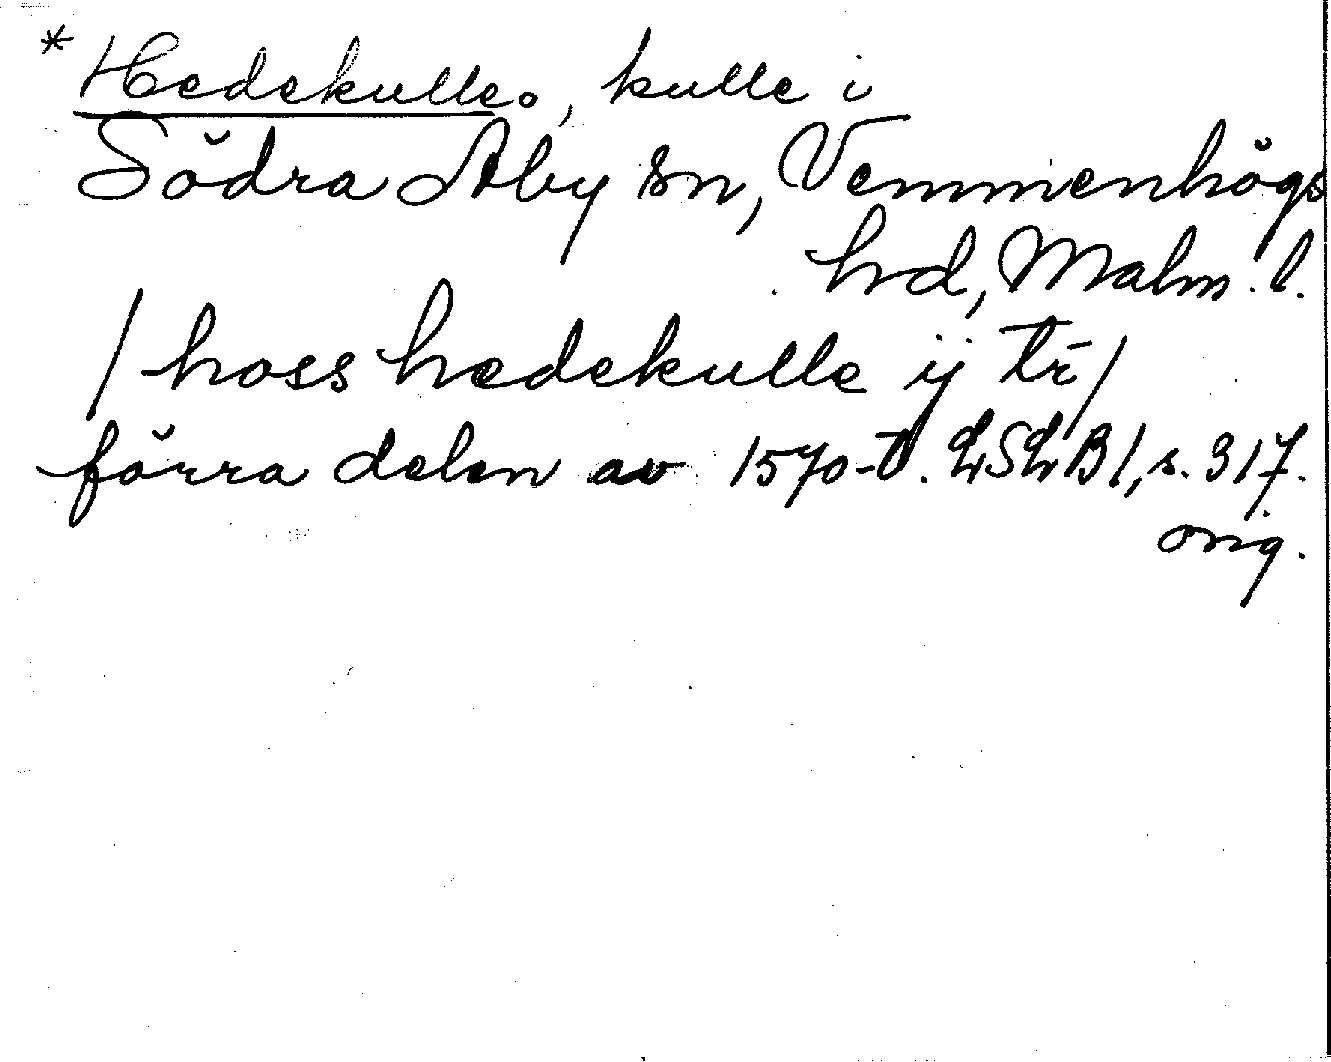 * Hedekulle, kulle i
Södra Åby sn, Vemmenhögs
hrd, Malm. l.
/ hoss hedekulle ij tr̄ /
förra delen av 1570-t. LSLB 1, s. 317.
orig.